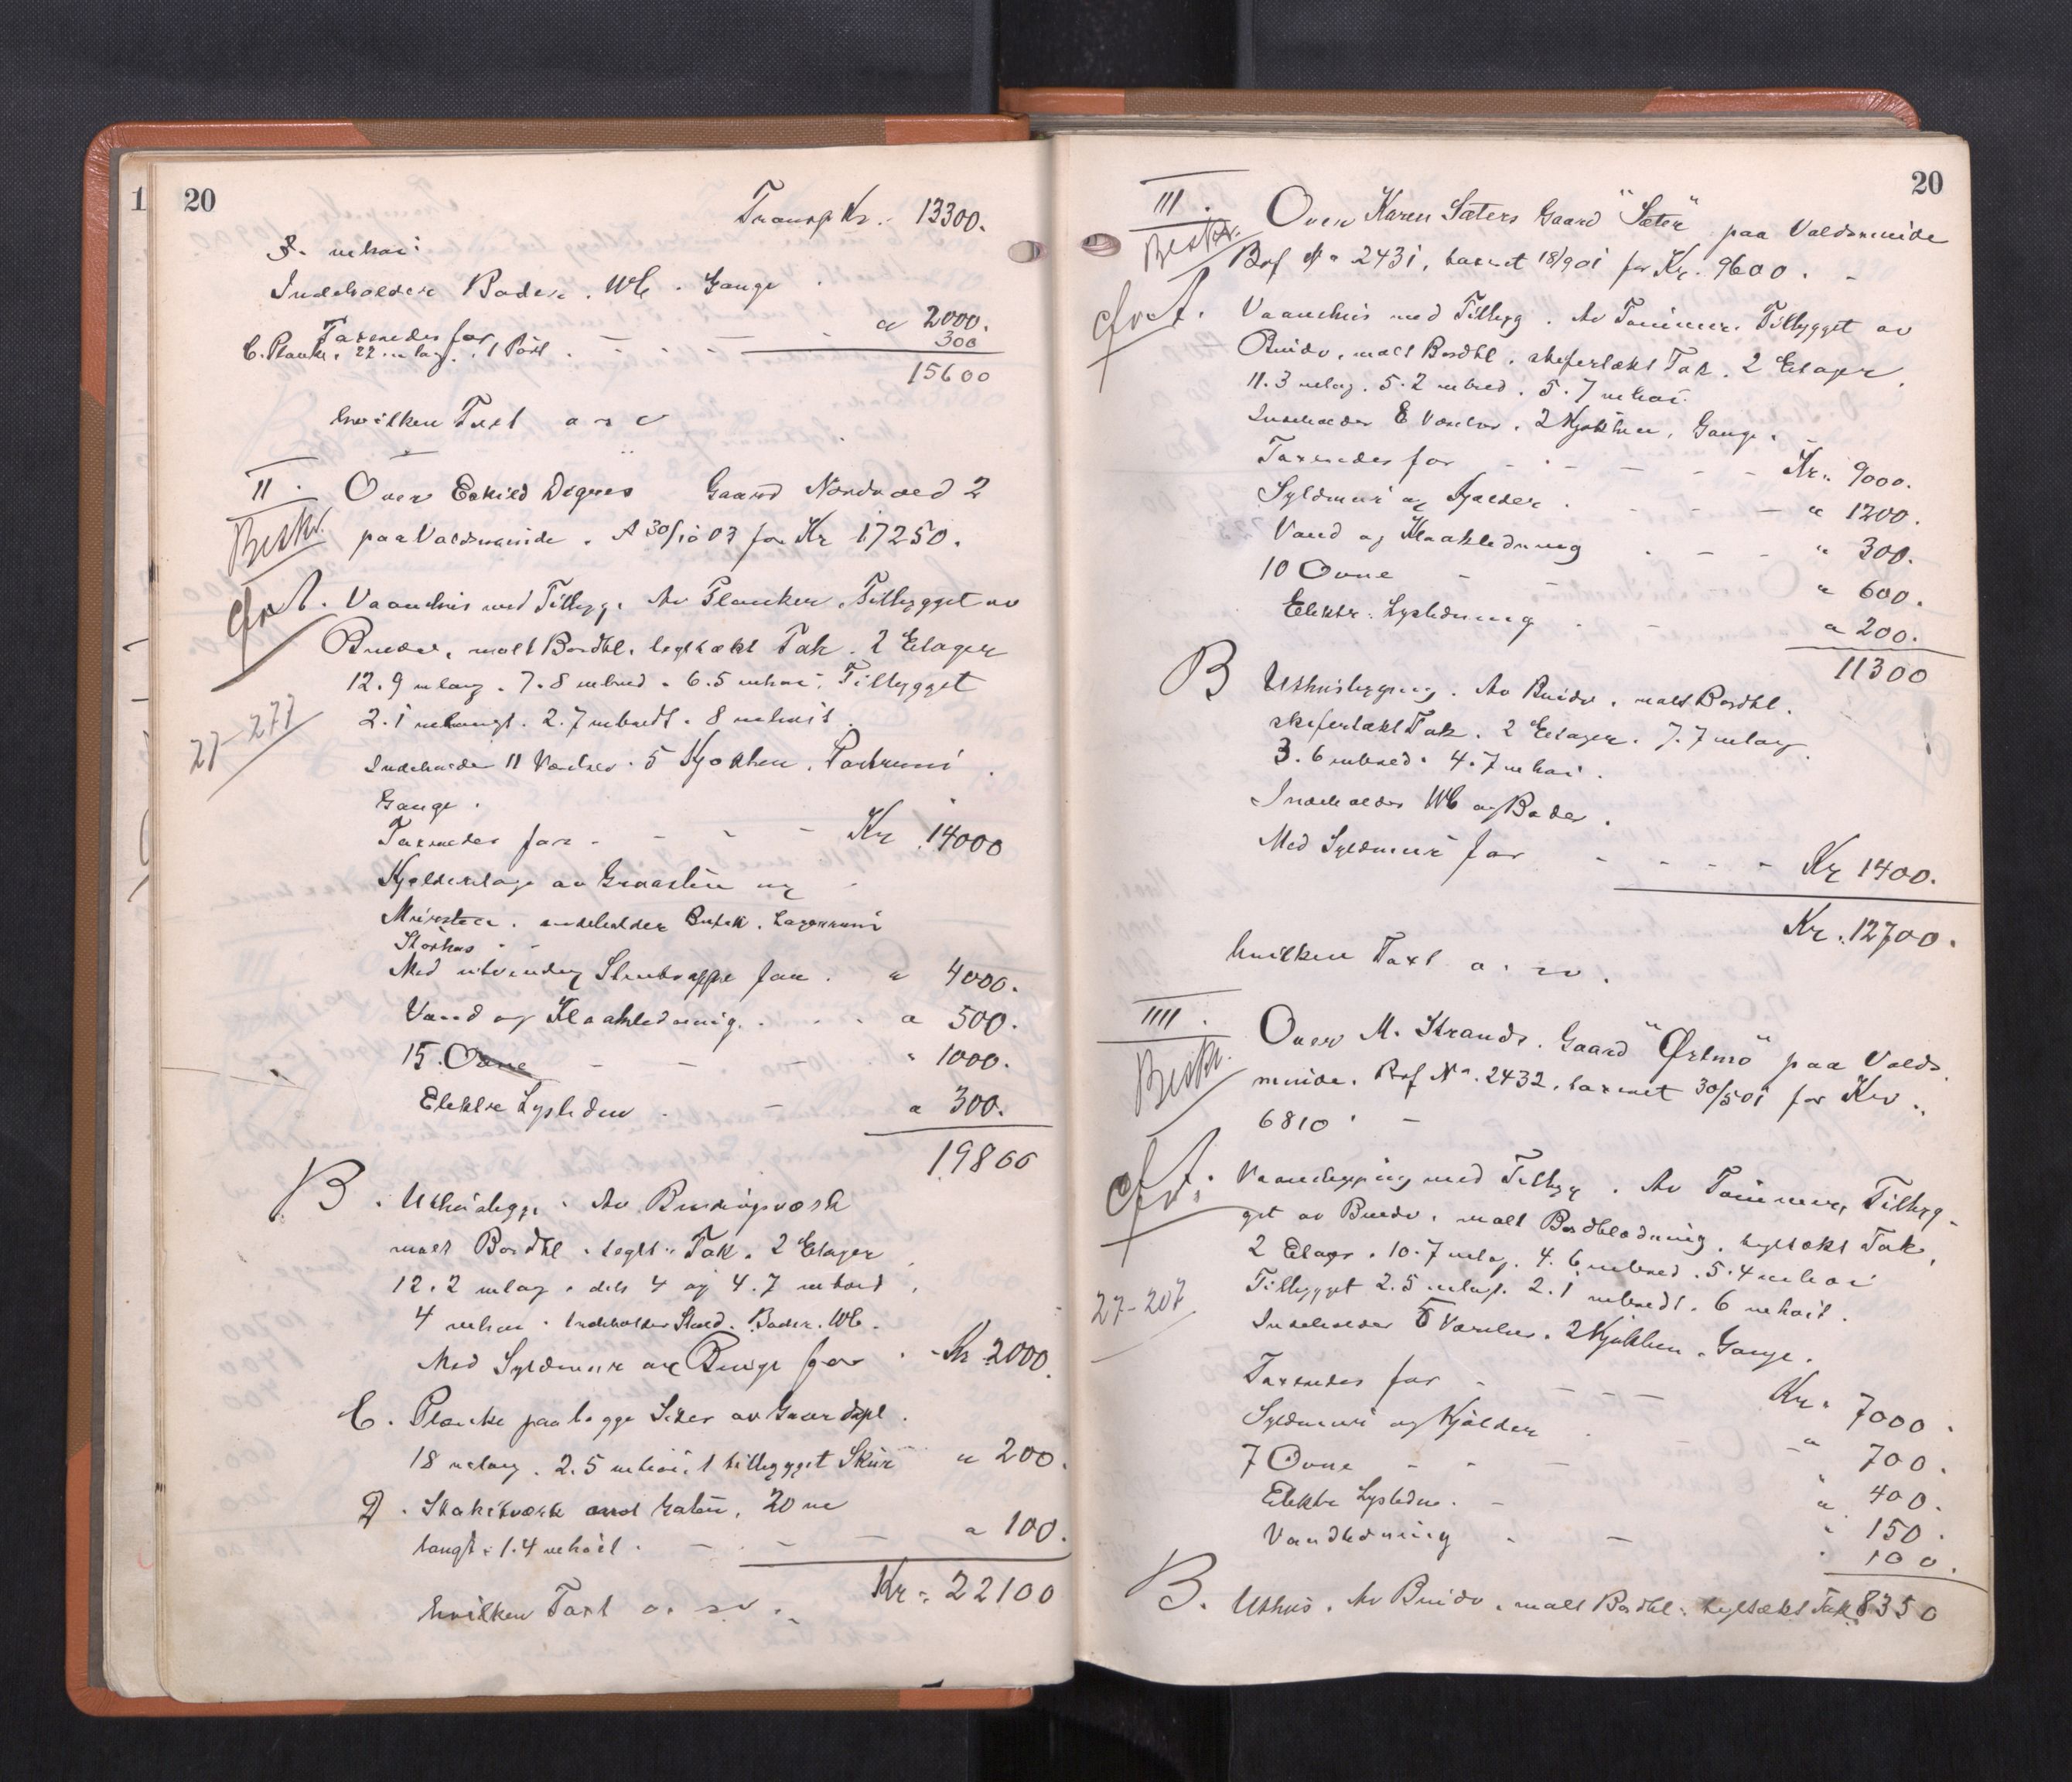 1
20
Transp Kr. 13300.
3. m høi
Indeholder Boder. WC. Gange
Taxeredes for — — — a 2000.
C. Planke. 22 m lang. 1 Port - - - 300
15600
hvilken Taxt o s v
II. Over Eskild Dignes Gaard Nordvold 2
Beskr. paa Valdsminde. A 30/10 03 for Kr 17250.
A. Vaanehus med Tilbyg. Av Planker. Tilbygget av
Bindv. malt Bordkl. teglsækt Tak. 2 Etager
12.9 m lang. 7.8 m bred. 6.5 m høi. Tilbygget
27-277
2.1 m langt. 2.7 m bredt. 8 m høit.
Indeholder 11 Værelser. 5 Kjøkken.
Gange.
Taxeredes for - - - Kr 14000
Kjelderetage av Graasten og
Mursten. indeholder Butik. Lagerrum
Med utvendig Stentrappe for. a 4000.
Vand og Kloakledning. . . a 500.
15. Ovne - - - " 1000.
Elektr Lysledn . - a 300.
19800
B. Uthusbygg. Av Bindingsverk
malt Bordkl. teglt. Tak. 2 Etager
12.2 m lang. dels 4 og 4.7 m bred
4 m høi. Indeholder Stald. Boder. WC.
Med Syldmur for . Kr 2000.
C. Planke paa begge Sider av Gaardspl.
18 m lang. 2.5 m høi. 1 tilbygget Skur a 200.
D. Stakitværk mot Gaten. 20 m
langt. 1.4 m høit. - - - a 100.
Kr. 22100
hvilken Taxt o. s v.
20
III. Over Karen Sæters Gaard "Sæter" paa Valdsminde
Beskr. Brf No 2431, taxert 18/9 01 for Kr. 9600. -
A. Vaanehus med Tilbyg. Av Tømmer. Tilbygget av
Bindv. malt Bordkl. skifertækt Tak. 2 Etager.
11.3 m lag. 5.2 m bred. 5.7 m høi.
Indeholder 8 Værelser. 2 Kjøkken, Gange.
Taxeredes for - - - - Kr. 9000.
Syldmur og Kjælder. - - - " 1200.
Vand og Kloakledning . - - " 300.
10 Ovne - - " 600.
Elektr. Lysledning . - a 200.
11300
B Uthusbygning. Av Bindv. malt Bordkl.
skifertækt Tak. 2 Etager. 7.7 m lang
3.6 m bred. 4.7 m høi.
Indeholder WC og Boder.
Med Syldmur for - - - - Kr 1400.
Kr. 12700.
hvilken Taxt o. s v.
IIII. Over M. Strands. Gaard "Ørlmo" paa Valds
Beskr. minde. Brf No. 2432. taxeret 30/5 01 for Kr.
6810. -
A. Vaanebygning med Tilbyg. Av Tømmer, Tilbyg-
get av Bindv. malt Bordklædning. teglsækt Tak.
2 Etager. 10.7 m lag. 4.6 m bred. 5.4 m høi
27-207
Tilbygget 2.5 m lagt. 2.1 m bredt. 6 m høit.
Indeholder 5 Værelser. 2 Kjøkken. Gange.
Taxeredes for - - - - Kr. 7000.
Syldmur og Kjælder . " 700.
7 Ovne - - - a 400.
Elektr Lysledn. - " 150.
Vandledning - - . 100.
B. Uthus. Av Bindv. malt Bordkl. teglsækt Tak. 8350